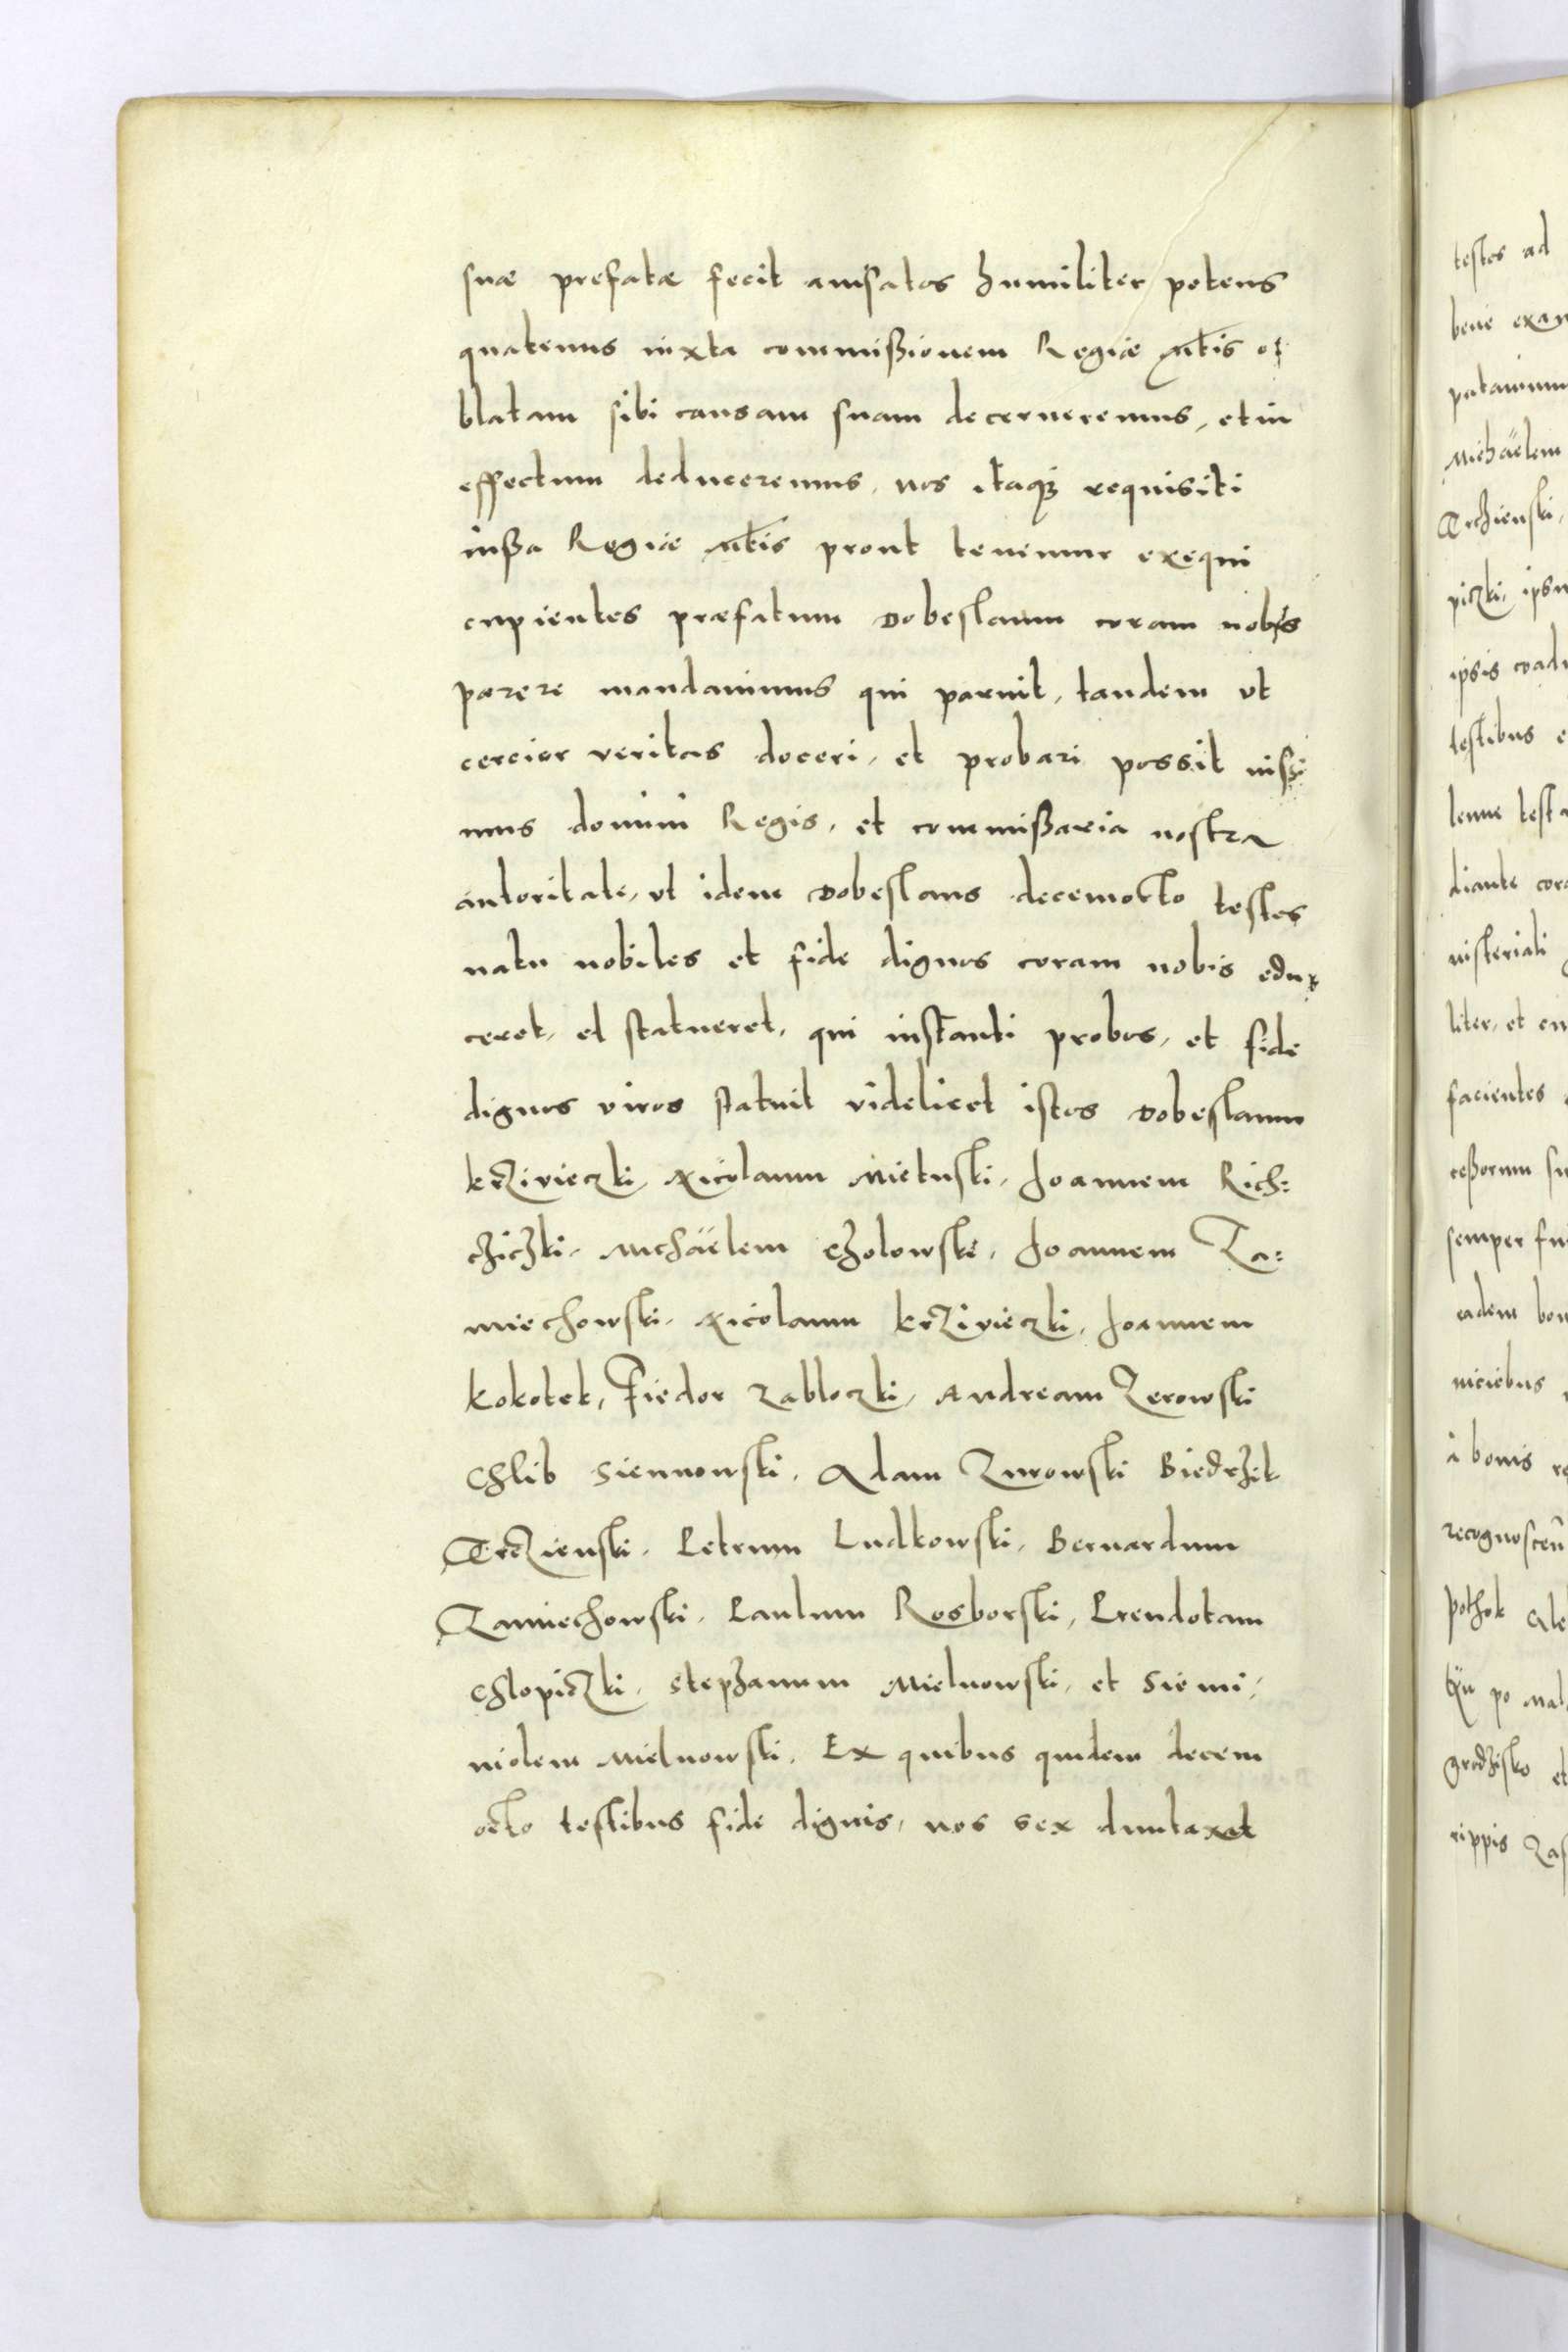 suæ prefatæ fecit auisatos humiliter potens
quatenus iuxta commißionem Regiæ Mtis o⸗
blatam sibi causam suam decerneremus, et in
effectum deduceremus, nos itaq; requisiti
iußa Regiæ Mtis prout tenemur exequi
cupientes præfatum Dobeslaum coram nobis
parere mandauimus qui paruit, tandem vt
cercior veritas doceri, et probari possit iußi
mus domini Regis, et commißaria nostra
autoritate, vt idem Dobeslaus decemocto testes
natu nobiles et fide dignos coram nobis edu⸗
ceret, et statueret, qui instanti probos, et fide
dignos viros statuit videlicet istos Dobeslaum
krzivieczki, Nicolaum Mietuski, Joannem Rich⸗
chiczki, Michäelem Czolowski, Joannem Ta⸗
miechowski, Nicolaum krzivieczki, Joannem
kokotek, Fiedor Zabloczki, Andream Zerowski
Chlib Siennowski, Adam Zurowski Biedrzik
Trczienski, Petrum Ludkowski, Bernardum
Tamiechowski, Paulum Rosborski, Prendotam
Chlopiczki, Stephanum Mielnowski, et Siemi⸗
niolem Mielnowski. Ex quibus quidem decem
octo testibus fide dignis, nos sex duntaxat
testes ad
bene exam
Michäelem
Trchienski,
piczki, ipsu
ipsis coadu
testibus e
lenne test
diante cor
nisteriali
liter, et
facientes
ceßorum su
semper fu
eadem bon
niciebus
à bonis re
recognoscen
pothok Ale
po Mal
grodzisko et
rippis Zas